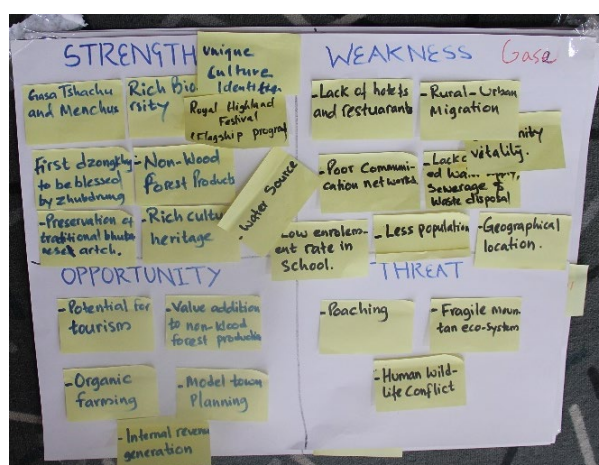 STRENGTH
Unique
Culture
Gasa Tshachu
and Menchus
Rich Bio
rsity
Royal Highland
Festival
(Flagship program
First dzongkhg
to be blessed
by zhubdrung
-Non-Wood
Forest Products
-Water Source
-Preservation of
traditional
artch.
-Rich cultu
heritage
WEAKNESS
Gasa
-Lack of hotels
and restuarants
-Rural-Urban
Migration
nity
vitality.
-Poor Communi-
cation networks
-Lack
ed
Sewerage &
Waste disposal
Low enrolem-
ent rate in
School.
-Less population
-Geographical
location.
OPPORTUNITY
-Potential for
tourism
-Value addition
to non-Wood
forest production
-Organic
farming
-Model town
Planning
-Internal revenu
generation
THREAT
-Poaching
-Fragile moun-
tan eco-system
-Human Wild-
Life Conflict